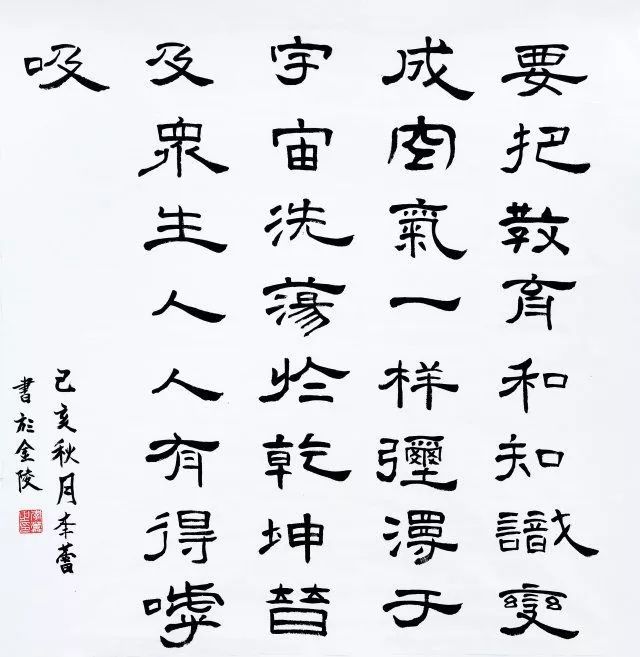 要把教育和知識變
成空氣一样彌漫于
宇宙洗蕩於乾坤普
及眾生人人有得嘑
吸
己亥秋月李
書於金陵